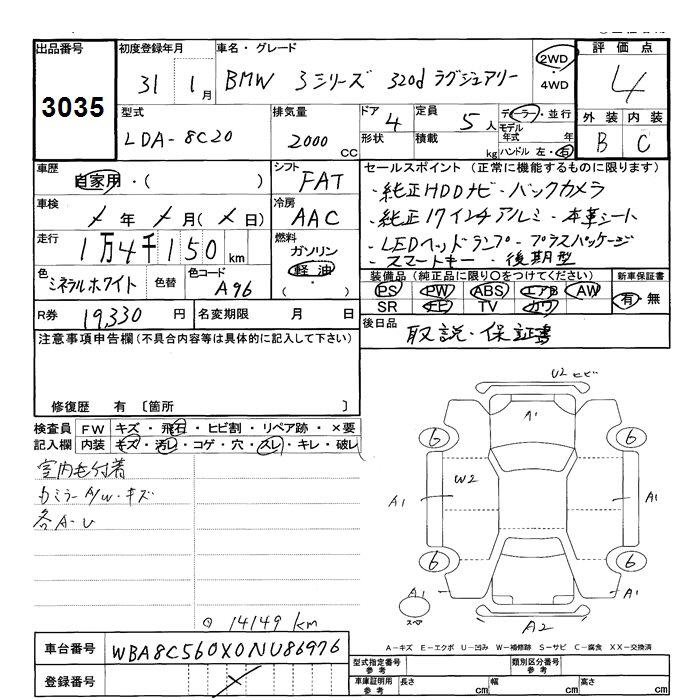 出品番号
3035
初度登録年月
31 1月
車名・グレード
BMW 3シリーズ 320d ラグジュアリー
2WD
・
4WD
評価点
4
外装 内装
B C
型式
LDA-8C20
排気量
2000 CC
ドア 4
形状
定員 5人
積載 kg
ディーラー・並行
モデル年式 年
ハンドル 左・右
車歴
自家用・( )
シフト
FAT
車検
年 月(日)
冷房
AAC
走行
1万4千150 km
燃料
ガソリン
軽油
( ・ )
色
ミネラルホワイト
色替
色コード
A96
R券 19330 円
名変期限 月 日
セールスポイント(正常に機能するものに限ります)
・純正HDDナビ・バックカメラ
・純正17インチアルミ・本革シート
・LEDヘッドランプ・プラスパッケージ
・スマートキー・後期型
装備品(純正品に限り〇をつけてください)
PS PW ABS エアB AW
SR ナビ TV カワ
新車保証書
有・無
後日品
取説・保証書
注意事項申告欄(不具合内容等は具体的に記入して下さい)
修復歴 有〔箇所 〕
検査員記入欄
FW キズ・飛石・ヒビ割・リペア跡・×要
内装 キズ・汚レ・コゲ・穴・スレ・キレ・破レ
室内毛付着
カミラー A/W・キズ
各A-U
◎ 14149 km
車台番号 WBA8C560X0NU86976
登録番号
U2 ヒビ
A1
6 6
W2
A1 A1
6 6
A1 A1
スペア
A2
A-キズ E-エクボ U-凹み W-補修跡 S-サビ C-腐食 XX-交換済
型式指定番号
参考
類別区分番号
参考
車庫証明用
参考
長さ cm 幅 cm 高さ cm